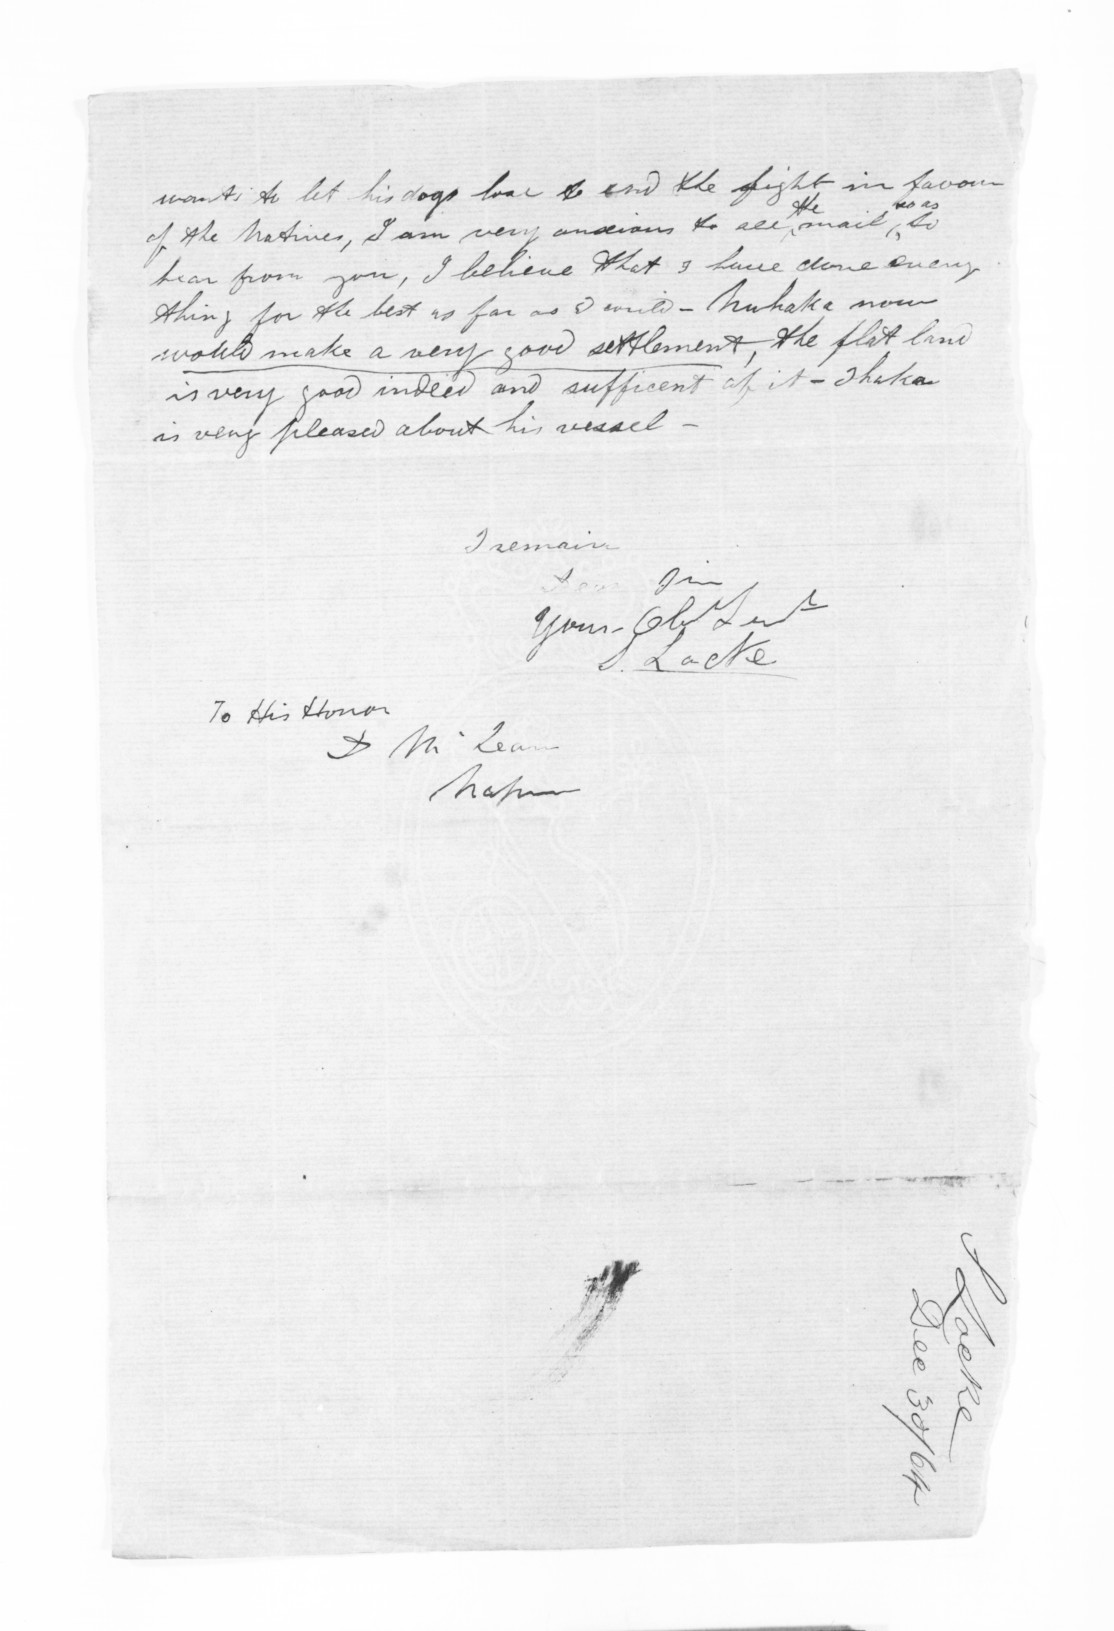 wants to let his dogs lose to end the fight in favour
of the Natives, I am very anxious to see the mail, so as to
hear from you, I believe that I have done every
thing for the best as far as I could - Nuhaka now
would make a very good settlement, the flat land
is very good indeed and sufficent of it - Ihaka
is very pleased about his vessel -
I remain
Dear Sir
Yours Obt Servt
S. Locke
To His Honor
D McLean
Napier
S Locke
Dec 30/64